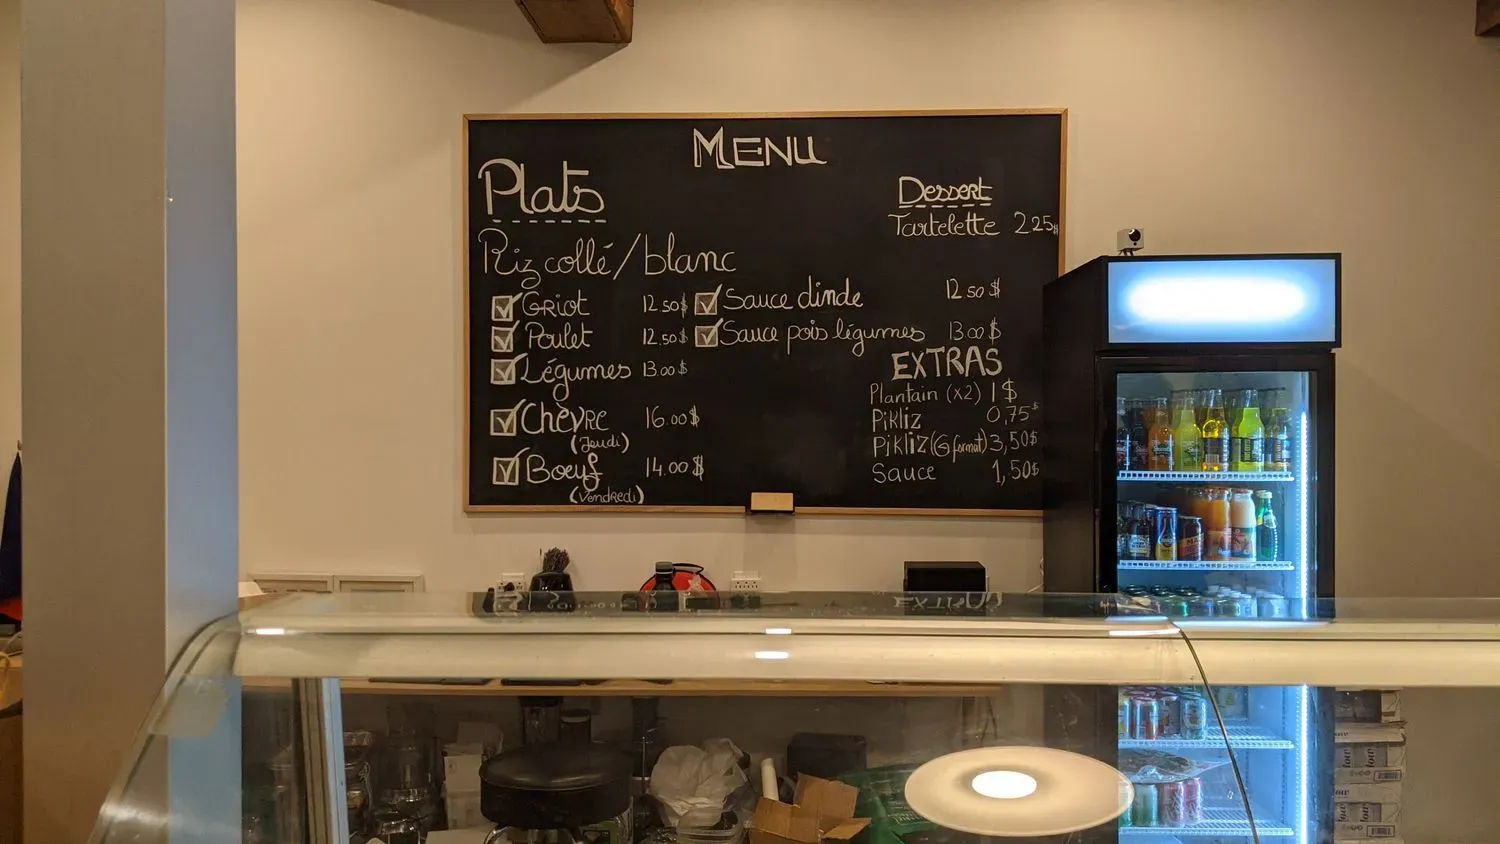 MENU
Plats
Riz collé/blanc
Griot 12.50$
Poulet 12.50$
Légumes 13.00$
Chèvre 16.00$
(Jeudi)
Boeuf 14.00$
(Vendredi)
Sauce dinde 12.50$
Sauce pois légumes 13.00$
Dessert
Tartelette 2.25$
EXTRAS
Plantain (x2) 1$
Pikliz 0,75$
Pikliz (G format) 3,50$
Sauce 1,50$